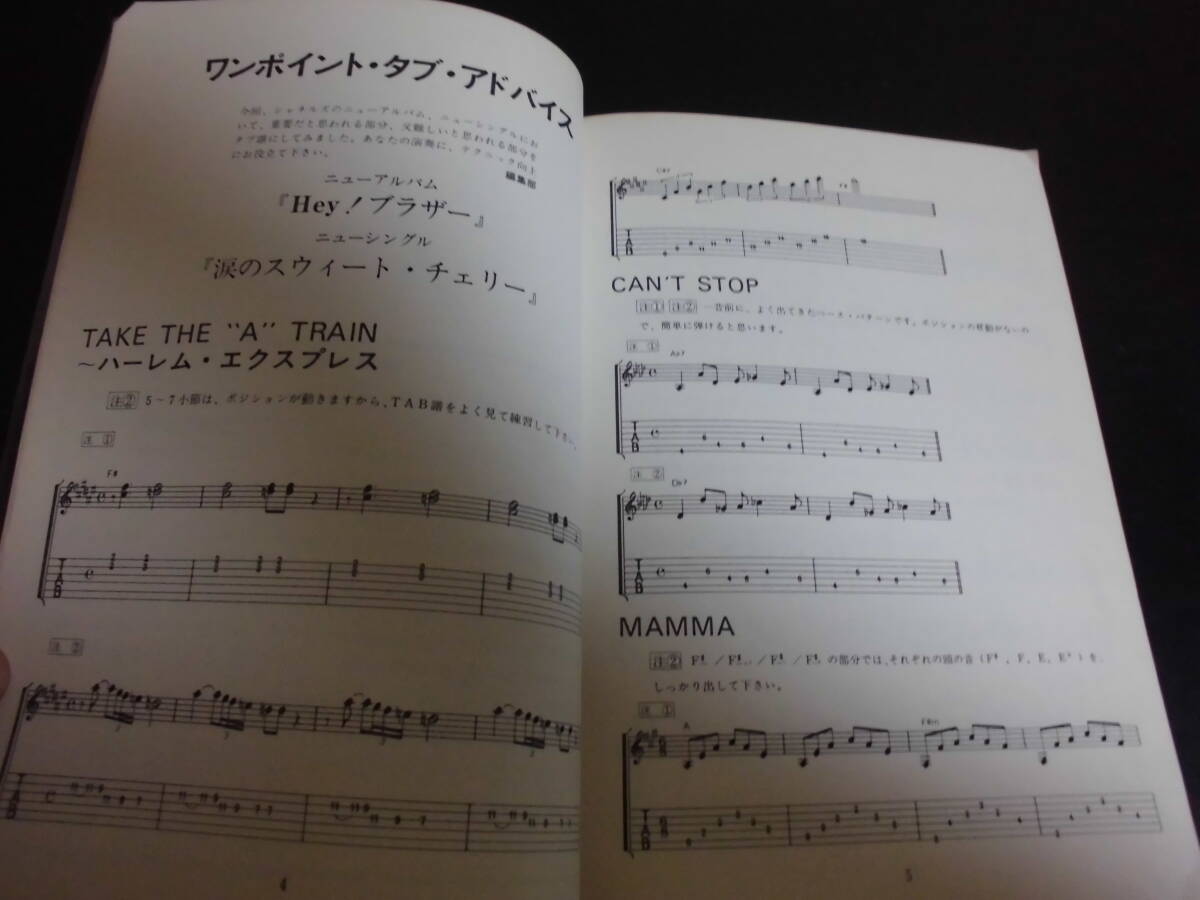 ワンポイント・タブ・アドバイス
今回、シャネルズのニューアルバム、ニューシングルにお
いて、重要だと思われる部分、又難しいと思われる部分を
タブ譜にしてみました。あなたの演奏に、テクニック向上
にお役立て下さい。
編集部
ニューアルバム
『Hey!ブラザー』
ニューシングル
『涙のスウィート・チェリー』
TAKE THE "A" TRAIN
~ハーレム・エクスプレス
注② 5~7小節は、ポジションが動きますから、TAB譜をよく見て練習して下さい。
注 ①
F#
TAB
注 ②
TAB
4
TAB
CAN'T STOP
注① 注② 一昔前に、よく出てきたベース・パターンです。ポジションの移動がないの
で、簡単に弾けると思います。
注 ①
A♭7
TAB
注 ②
D♭7
TAB
MAMMA
注② の部分では、それぞれの頭の音(F#, F, E, を、
しっかり出して下さい。
注 ①
A F#m
TAB
5